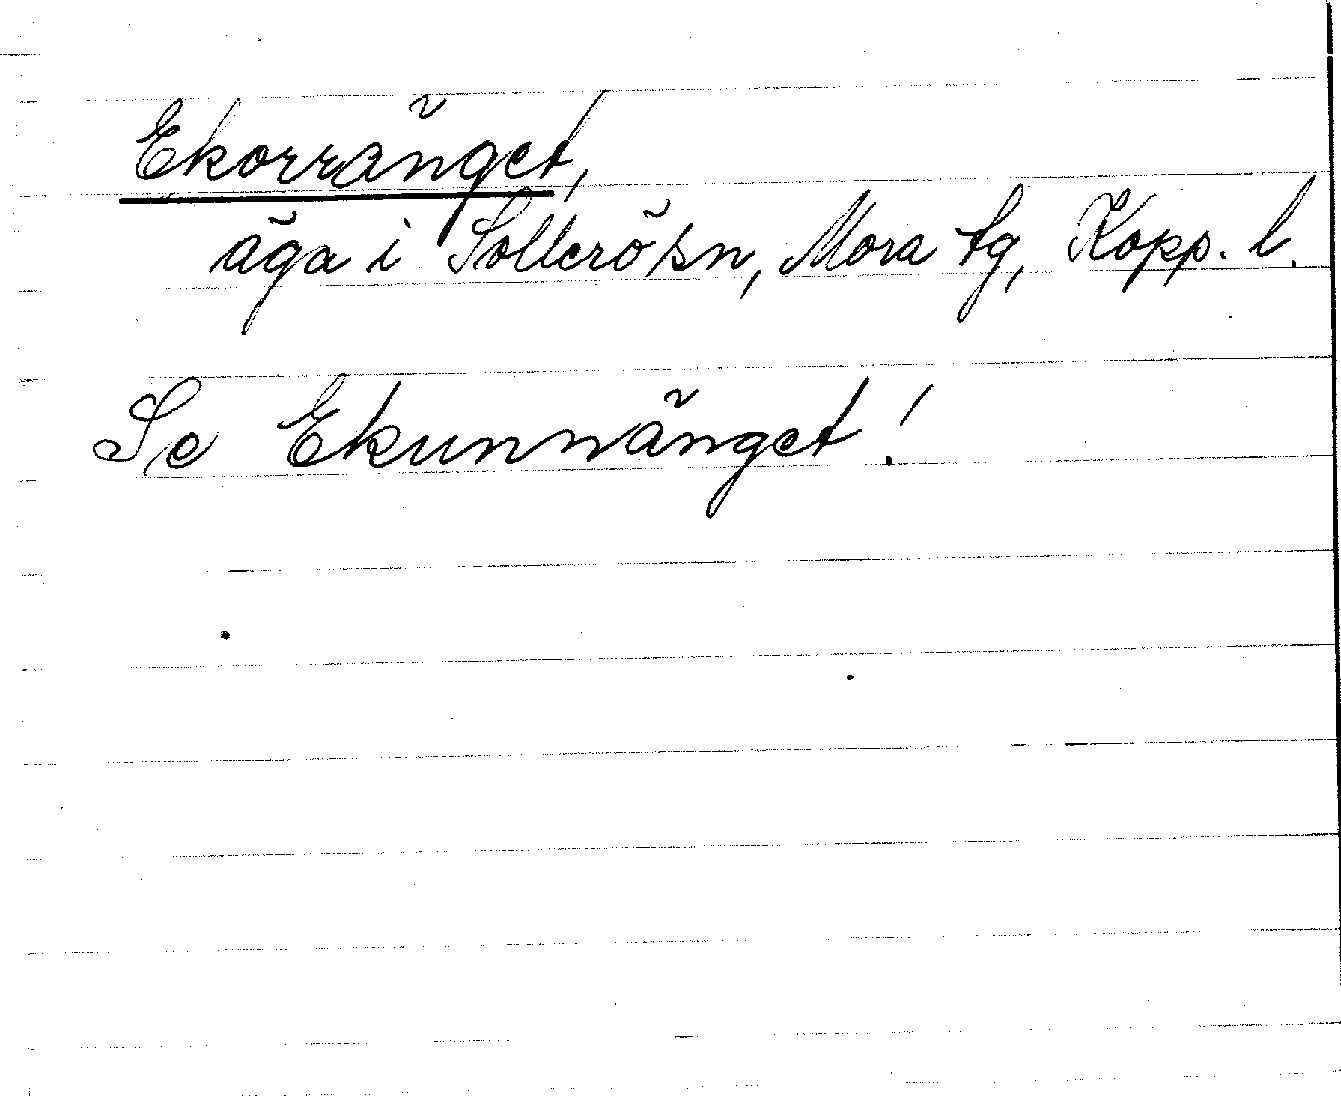 Ekorränget,
äga i Sollerö sn, Mora tg, Kopp. l.
Se Ekunnänget!